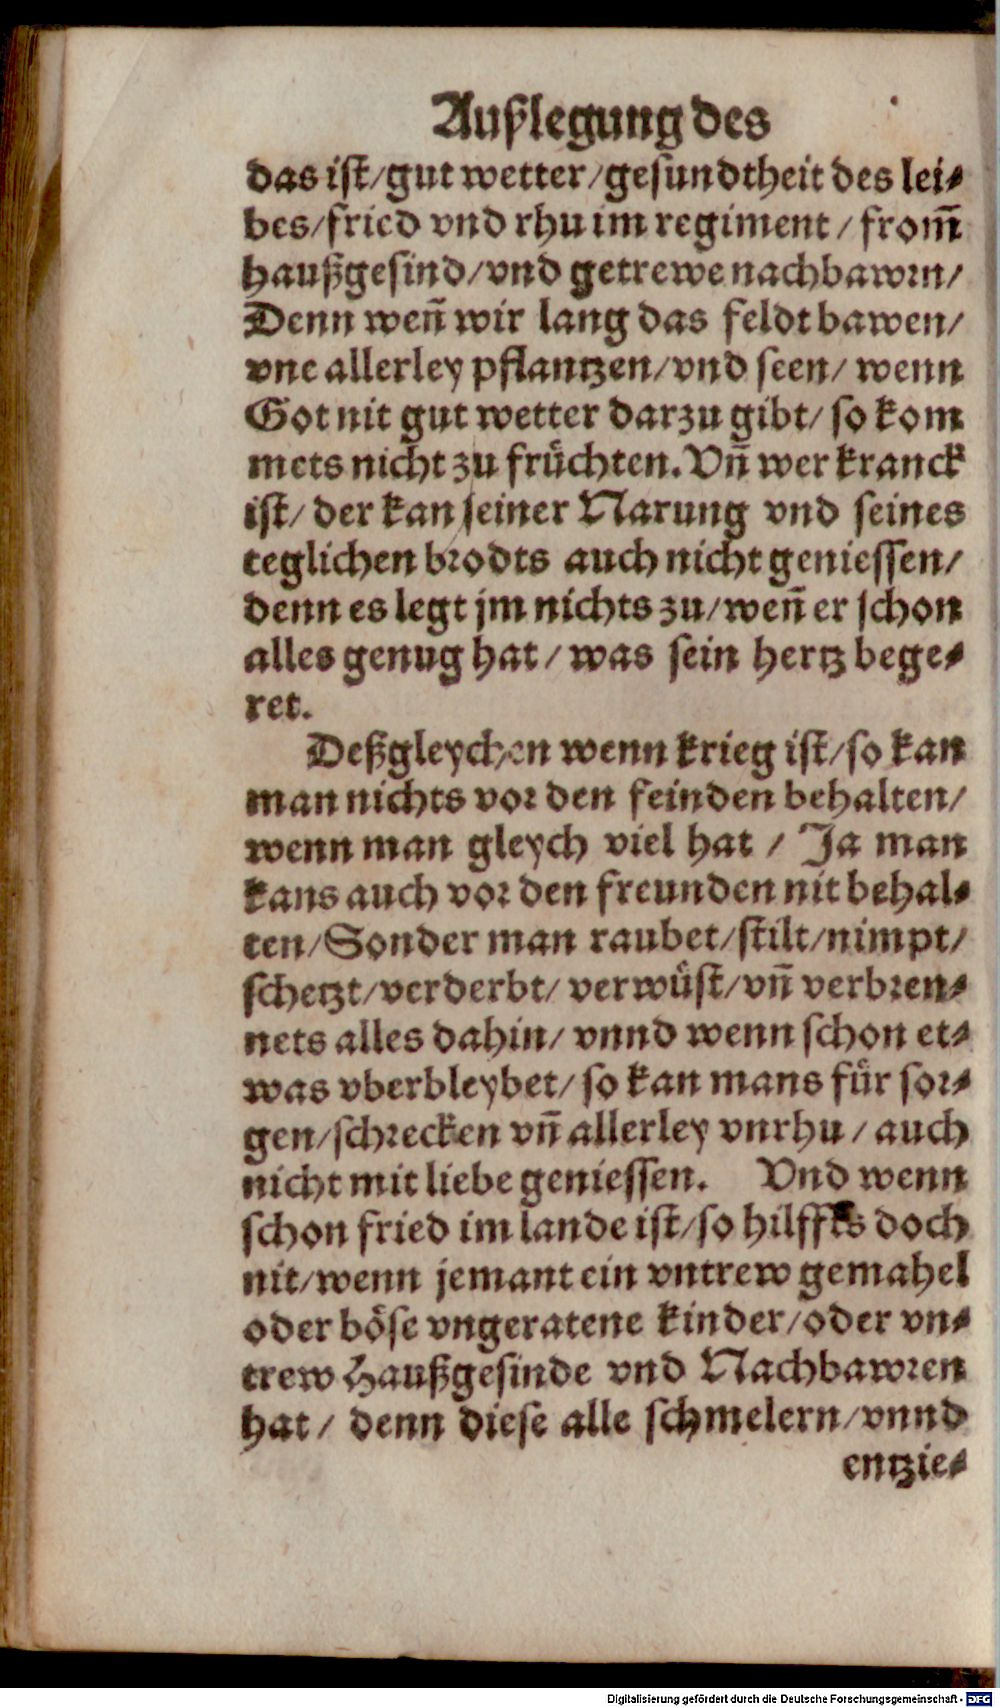 Außlegung des
das ist/gut wetter/gesundtheit des lei⸗
bes/fried vnd rhu im regiment/from̄
haußgesind/vnd getrewe nachbawrn/
Denn wen̄ wir lang das feldt bawen/
vne allerley pflantzen/vnd seen/ wenn
Got nit gut wetter darzu gibt/ so kom
mets nicht zu früchten. Vn̄ wer kranck
ist/ der kan seiner Narung vnd seines
teglichen brodts auch nicht geniessen/
denn es legt jm nichts zu/wen̄ er schon
alles genug hat/ was sein hertz bege⸗
ret.
Deßgleychen wenn krieg ist/so kan
man nichts vor den feinden behalten/
wenn man gleych viel hat / Ja man
kans auch vor den freunden nit behal⸗
ten/Sonder man raubet/stilt/nimpt/
schetzt/verderbt/ verwüst/vn̄ verbren⸗
nets alles dahin/ vnnd wenn schon et⸗
was vberbleybet/ so kan mans für sor⸗
gen/schrecken vn̄ allerley vnrhu/ auch
nicht mit liebe geniessen. Vnd wenn
schon fried im lande ist/so hilffts doch
nit/wenn jemant ein vntrew gemahel
oder böse vngeratene kinder/oder vn⸗
trew Haußgesinde vnd Nachbawren
hat/ denn diese alle schmelern/vnnd
entzie⸗
Digitalisierung gefördert durch die Deutsche Forschungsgemeinschaft - DFG